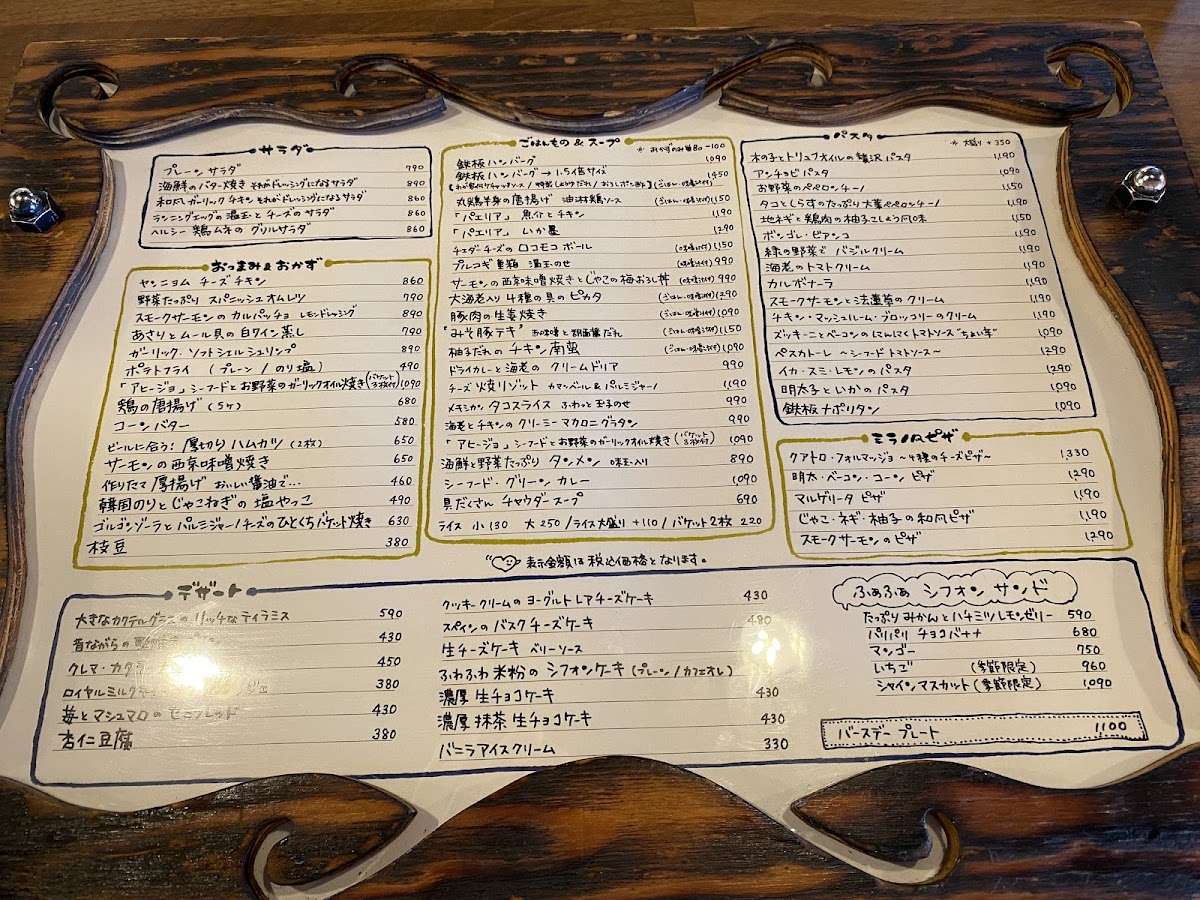 サラダ
プレーン サラダ 790
海鮮のバター焼き それがドレッシングになるサラダ 890
和だしガーリックチキン それがドレッシングになるサラダ 860
ランニングエッグの温玉とチーズのサラダ 860
ヘルシー 鶏ムネの グリルサラダ 860
おつまみ & おかず
ヤンニョム チーズチキン 860
野菜たっぷり スパニッシュオムレツ 790
スモークサーモンの カルパッチョ レモンドレッシング 890
あさりとムール貝の白ワイン蒸し 790
ガーリック・ソフトシェルシュリンプ 890
ポテトフライ (プレーン / のり塩) 490
「アヒージョ」シーフードとお野菜のガーリックオイル焼き (バケット3枚付) 1,090
鶏の唐揚げ (5ヶ) 680
コーンバター 580
ビールに合う! 厚切りハムカツ (2枚) 650
サーモンの西京味噌焼き 650
作りたて厚揚げ おいしい醤油で… 460
韓国のりとじゃこねぎの塩やっこ 490
ゴルゴンゾーラとパルミジャーノチーズのひとくちバケット焼き 630
枝豆 380
ごはんもの & スープ
※おかずのみ -100
鉄板ハンバーグ 1,090
鉄板ハンバーグ → 1.5倍サイズ 1,450
丸鶏半身の唐揚げ 油淋鶏ソース (ごはん・味噌汁付) 1,150
「パエリア」 魚介とチキン 1,190
「パエリア」 いか墨 1,290
チェダーチーズのロコモコ ボール (味噌汁付) 1,150
プルコギ重箱 温玉のせ (味噌汁付) 990
サーモンの西京味噌焼きとじゃこの梅おろし丼 (味噌汁付) 990
大海老入り4種の具のピカタ (ごはん・味噌汁付) 1,290
豚肉の生姜焼き (ごはん・味噌汁付) 1,090
"みそ豚テキ" 西味噌と胡麻醤だれ (ごはん・味噌汁付) 1,150
柚子だれの チキン南蛮 (ごはん・味噌汁付) 1,090
ドライカレーと海老の クリームドリア 990
チーズ焼リゾット カマンベール & パルミジャーノ 1,190
メキシカン タコスライス ふわっと玉子のせ 990
海老とチキンのクリーミーマカロニグラタン 990
「アヒージョ」シーフードとお野菜のガーリックオイル焼き (バケット3枚付) 1,090
海鮮と野菜たっぷり タンメン 味玉入り 890
シーフード・グリーン カレー 1,090
具だくさん チャウダースープ 690
ライス 小130 大250 / ライス大盛り +110 / バケット2枚 220
パスタ
※大盛り +350
木の子とトリュフオイルの贅沢パスタ 1,190
アンチョビパスタ 1,090
お野菜のペペロンチーノ 1,150
タコとしらすのたっぷり大葉ペペロンチーノ 1,190
地ネギと鶏肉の柚子こしょう風味 1,150
ボンゴレ・ビアンコ 1,190
緑の野菜で バジルクリーム 1,190
海老のトマトクリーム 1,190
カルボナーラ 1,190
スモークサーモンと法蓮草のクリーム 1,190
チキン・マッシュルーム・ブロッコリーのクリーム 1,190
ズッキーニとベーコンのにんにくトマトソース"ちょい辛" 1,090
ペスカトーレ 〜シーフードトマトソース〜 1,290
イカ・スミ・レモンのパスタ 1,290
明太子といかのパスタ 1,090
鉄板ナポリタン 1,090
ミラノ風ピザ
クアトロ・フォルマッジョ 〜4種のチーズピザ〜 1,330
明太・ベーコン・コーン ピザ 1,290
マルゲリータ ピザ 1,190
じゃこ・ネギ・柚子の和風ピザ 1,190
スモークサーモンのピザ 1,290
表示金額は税込価格となります。
デザート
大きなカクテルグラスの リッチなティラミス 590
昔ながらの 430
クレマ・カタラ 450
ロイヤルミルクティ 380
苺とマシュマロの 430
杏仁豆腐 380
クッキークリームの ヨーグルトレアチーズケーキ 430
スペインのバスクチーズケーキ 480
生チーズケーキ ベリーソース
ふわふわ米粉の シフォンケーキ (プレーン / カフェオレ)
濃厚 生チョコケーキ 430
濃厚 抹茶 生チョコケーキ 430
バニラアイスクリーム 330
ふぁふぁ シフォン サンド
たっぷりみかんとハチミツレモンゼリー 590
パリパリ チョコバナナ 680
マンゴー 750
いちご (季節限定) 960
シャインマスカット (季節限定) 1,090
バースデー プレート 1,100